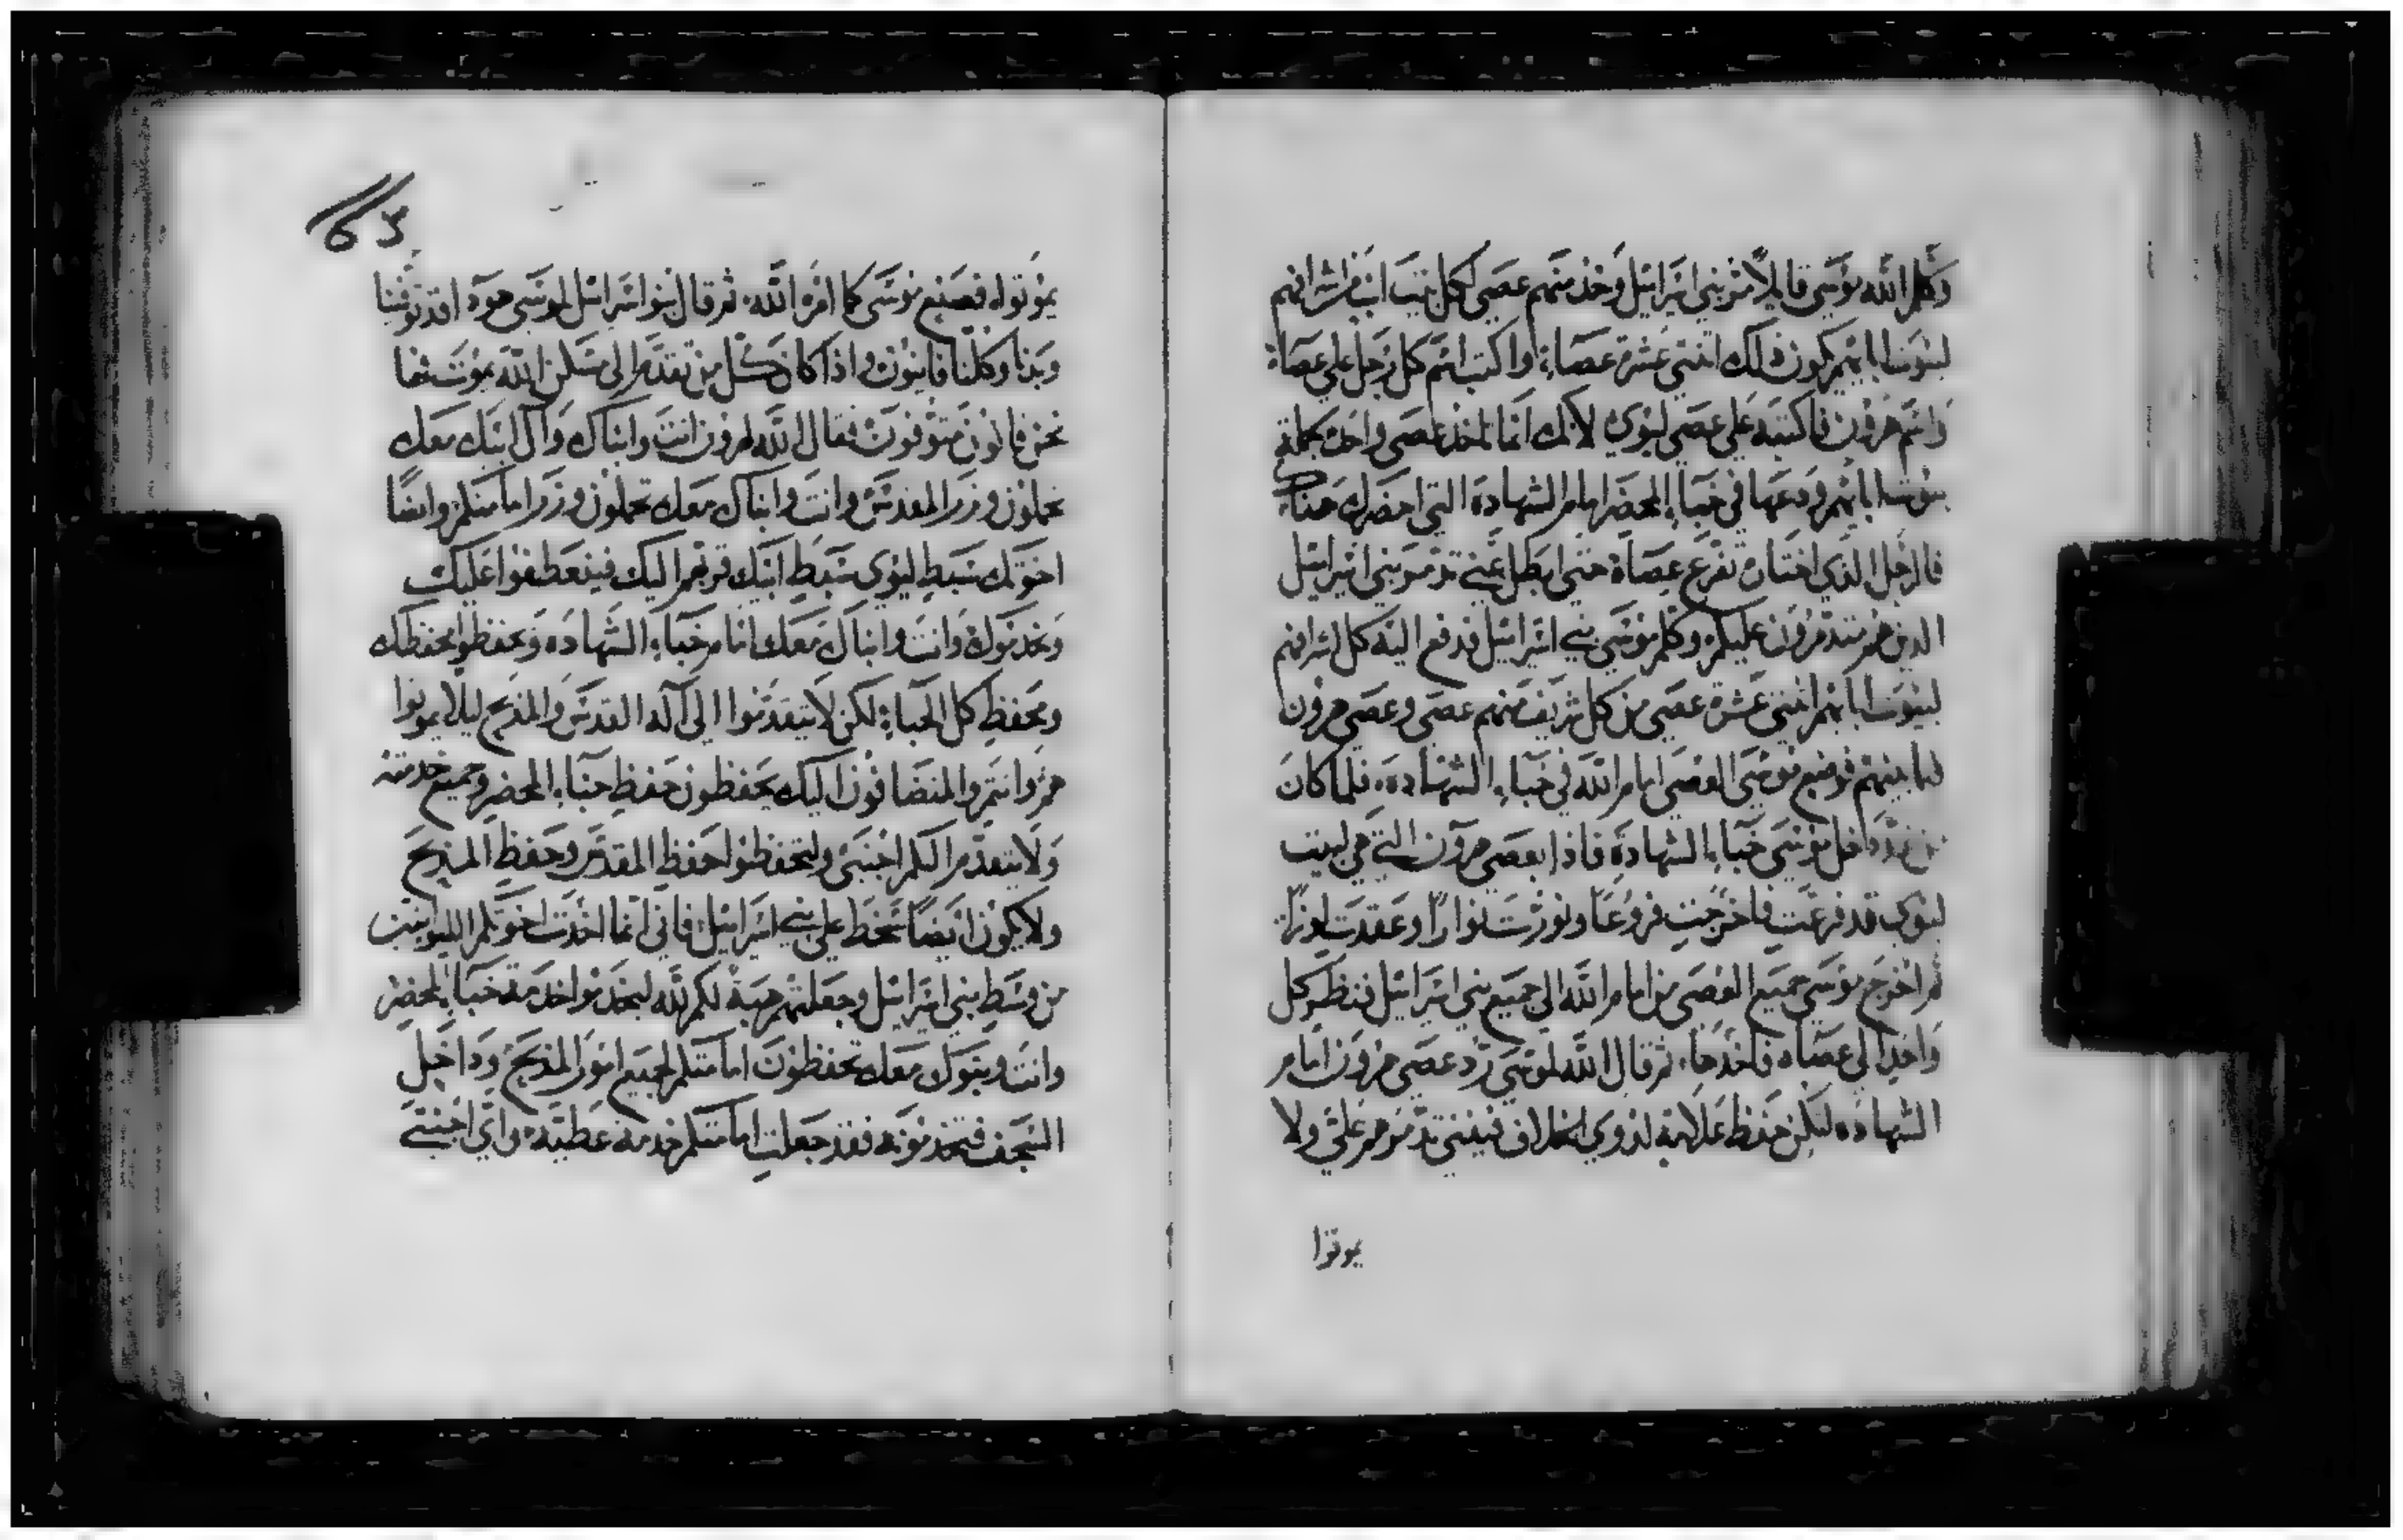 وكلم الله موسى قايلاً مر بني اسرائيل وخذ منهم عصى لكل بيت اب من اشرافهم
لبيوت ابايهم يكون ذلك اثنتي عشرة عصاة واكتب اسم كل رجل على عصاه
واسم هرون فاكتبه على عصى ليوي لانك انما تاخذ عصى واحده بجملة
بيوت ابايهم ودعها في خباء المحضر امام الشهادة التي احضرك هناك
فالرجل الذي اختاره تفرع عصاه حتى ابطل عني تذمر بني اسرائيل
الذين هم متذمرون عليكم وكلم موسى بني اسرائيل فدفع اليه كل اشرافهم
لبيوت ابايهم اثنتي عشرة عصى من كل شريف منهم عصى وعصى هرون
فيما بينهم فوضع موسى العصى امام الله في خباء الشهاده فلما كان
من غد دخل موسى خباء الشهادة فاذا بعصى هرون التي هي لبيت
ليوى قد فرعت فاخرجت فروعا ونورت نوارا وعقدت لوزا
ثم اخرج موسى جميع العصى من امام الله الى جميع بني اسرائيل فنظر كل
واحد الى عصاه فاخذها ثم قال الله لموسى رد عصى هرون امام
الشهاده لتكن حفظ علامة لذوي الخلاف فيفنى تذمرهم علي ولا
يموتوا
65
يموتوا فصنع موسى كما امره الله ثم قال بنو اسرائيل لموسى هوذا قد توفينا
وبدنا وكلنا فانيون واذا كان كل من تقدم الى مسكن الله يموت فها
نحن فانون متوفون فقال الله لهرون انت وابناك وآل ابيك معك
تحملون وزر المقدس وانت وابناك معك تحملون وزر امامتكم وايضا
اخوتك سبط ليوى سبط ابيك قربهم اليك فينعطفوا عليك
ويخدموك وانت وابناك معك امام خباء الشهاده ويحفظوا محفظك
ومحفظ كل الخباء لكن لا يتقدموا الى آلة القدس والمذبح ليلا يموتوا
هم وانتم والمنضافون اليك يحفظون حفظ خباء المحضر وجميع خدمته
ولا يتقدم اليكم اجنبي ولتحفظوا حفظ المقدس وحفظ المذبح
ولا يكون ايضا سخط على بني اسرائيل فاني انما اخذت اخوتكم الليوانيين
من وسط بني اسرائيل وجعلتهم هبة لكم لله ليخدموا خدمة خباء المحضر
وانت وبنوك معك تحفظون امامتكم لجميع امور المذبح وداخل
السجف فتخدمونه فقد جعلت امامتكم خدمة عطية واي اجنبي